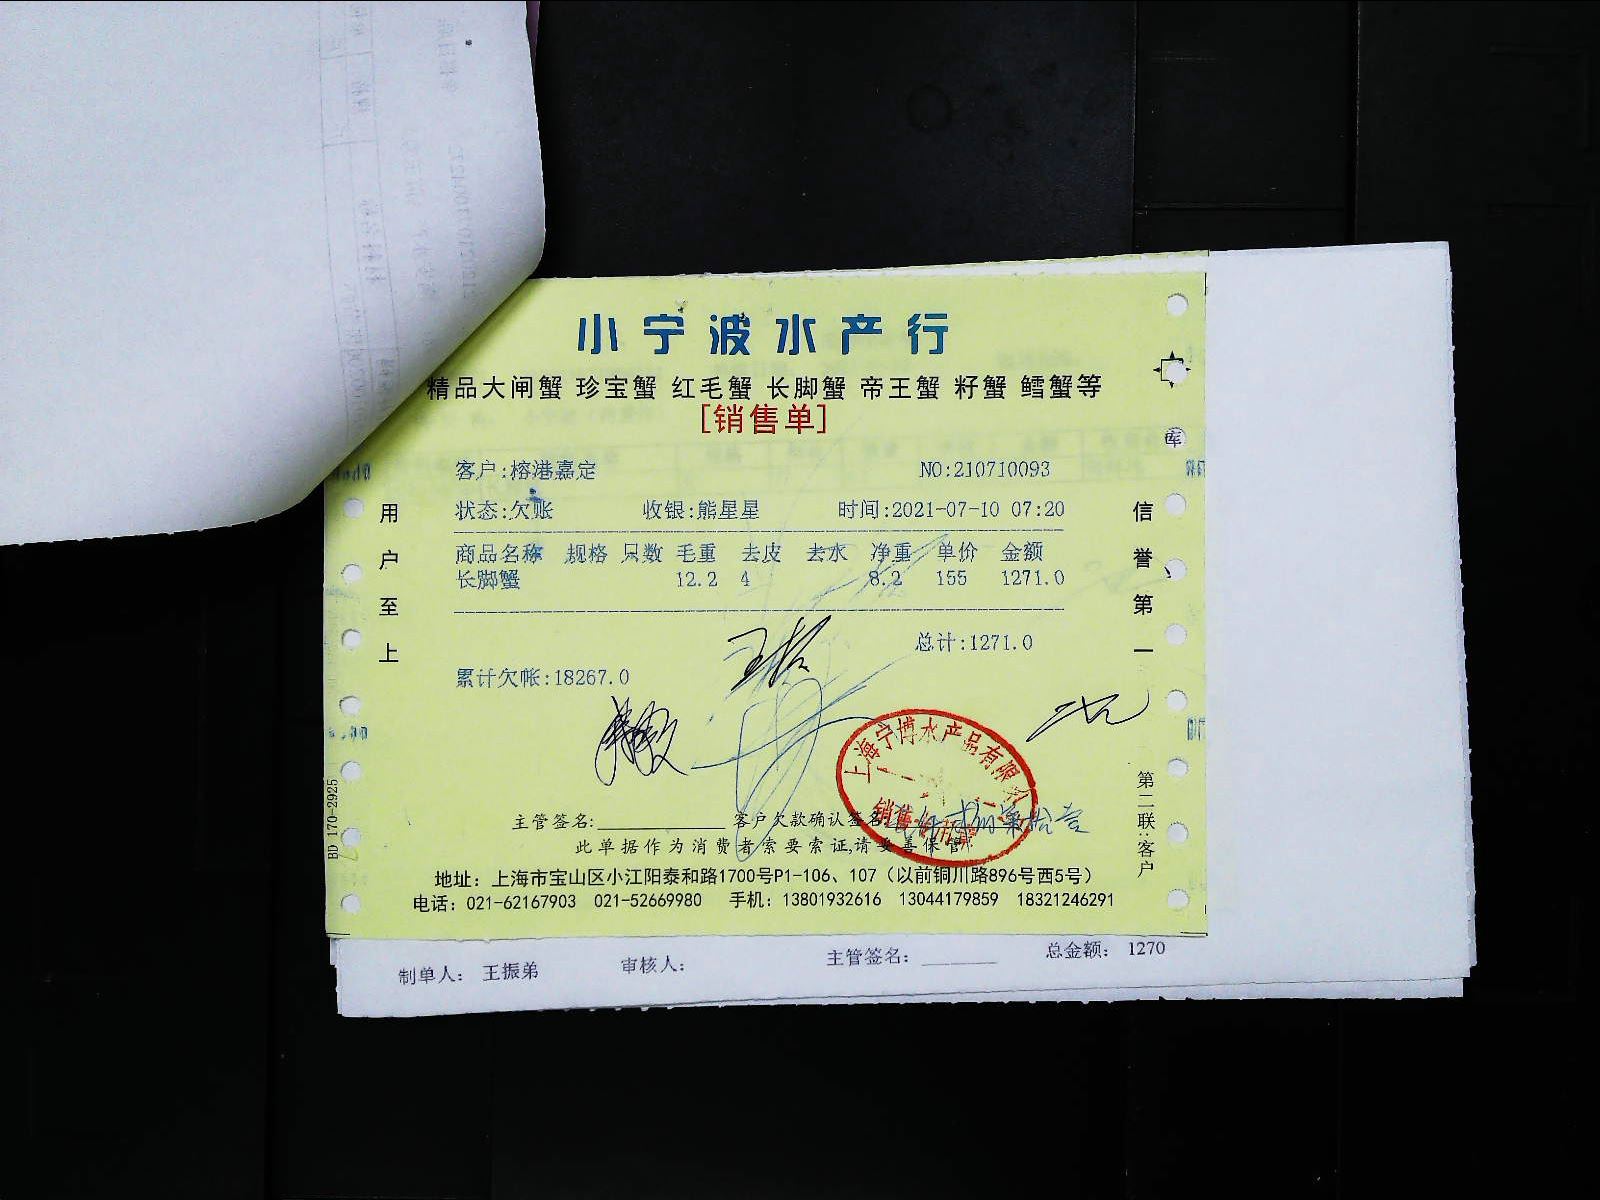 小宁波水产行
精品大闸蟹 珍宝蟹 红毛蟹 长脚蟹 帝王蟹 籽蟹 鳕蟹等
[销售单]
客户:榕港嘉定 NO:210710093
状态:欠账 收银:熊星星 时间:2021-07-10 07:20
商品名称 规格 只数 毛重 去皮 去水 净重 单价 金额
长脚蟹 12.2 4 8.2 155 1271.0
总计:1271.0
累计欠帐:18267.0
用户至上
信誉第一
第二联:客户
BD 170-2925
上海宁博水产品有限公
销售
主管签名:__________ 客户欠款确认签名
此单据作为消费者索要索证,请妥善保管!
地址：上海市宝山区小江阳泰和路1700号P1-106、107（以前铜川路896号西5号）
电话：021-62167903 021-52669980 手机：13801932616 13044179859 18321246291
制单人： 王振弟 审核人： 主管签名：________ 总金额： 1270
库